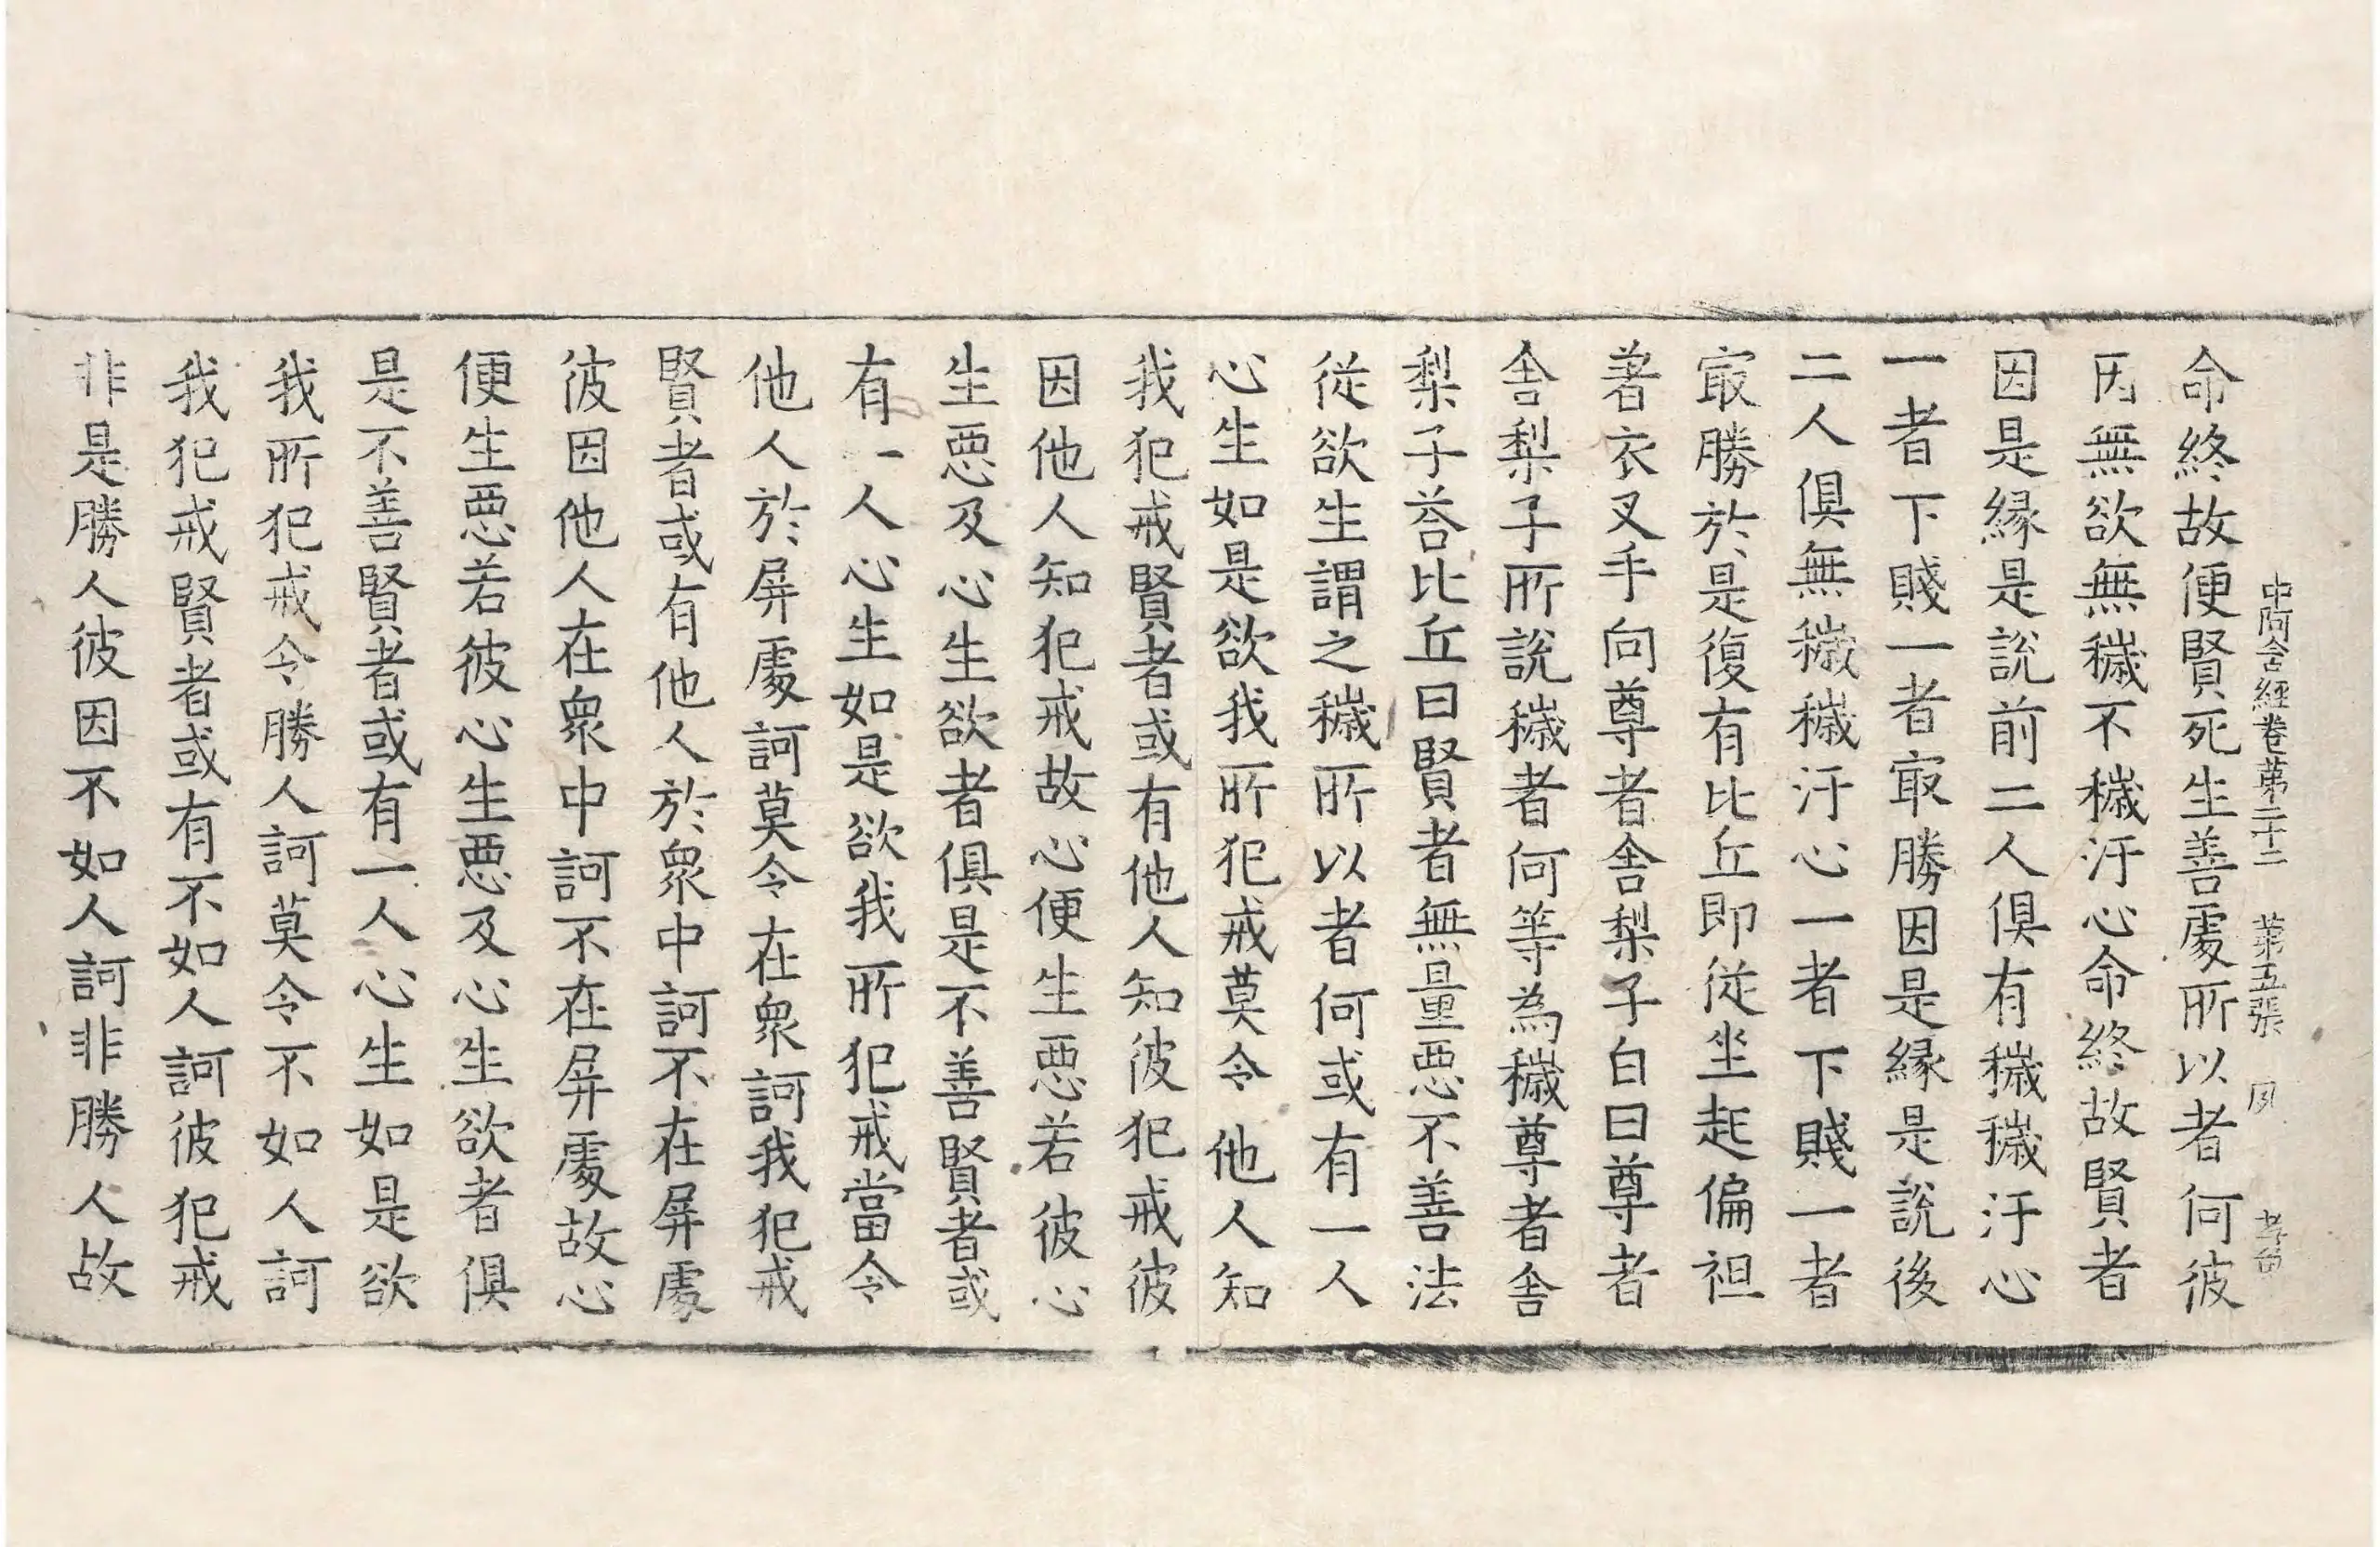 中阿含經卷第二十二 第五張 夙
命終故便賢死生善處所以者何彼
因無欲無穢不穢汙心命終故賢者
因是縁是說前二人俱有穢穢汙心
一者下賤一者㝡勝因是縁是說後
二人俱無穢穢汙心一者下賤一者
㝡勝於是復有比丘即從坐起偏袒
著衣叉手向尊者舍梨子白曰尊者
舍梨子所說穢者何等為穢尊者舍
梨子荅比丘曰賢者無量惡不善法
從欲生謂之穢所以者何或有一人
心生如是欲我所犯戒莫令他人知
我犯戒賢者或有他人知彼犯戒彼
因他人知犯戒故心便生惡若彼心
生惡及心生欲者俱是不善賢者或
有一人心生如是欲我所犯戒當令
他人於屏處訶莫令在衆訶我犯戒
賢者或有他人於衆中訶不在屏處
彼因他人在衆中訶不在屏處故心
便生惡若彼心生惡及心生欲者俱
是不善賢者或有一人心生如是欲
我所犯戒令勝人訶莫令不如人訶
我犯戒賢者或有不如人訶彼犯戒
非是勝人彼因不如人訶非勝人故